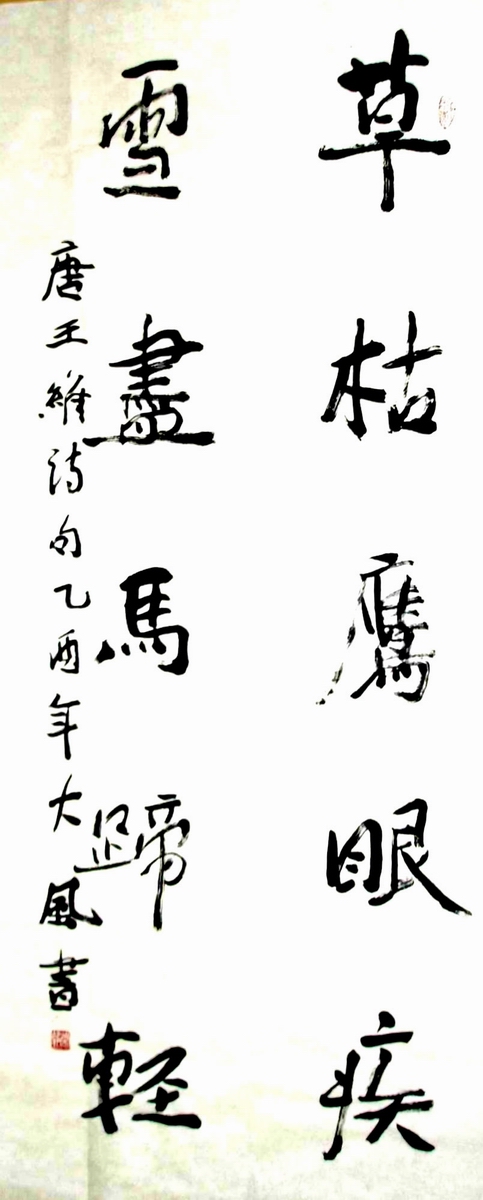 草枯鷹眼疾
雪盡馬蹄輕
唐王維詩句乙酉年大風書